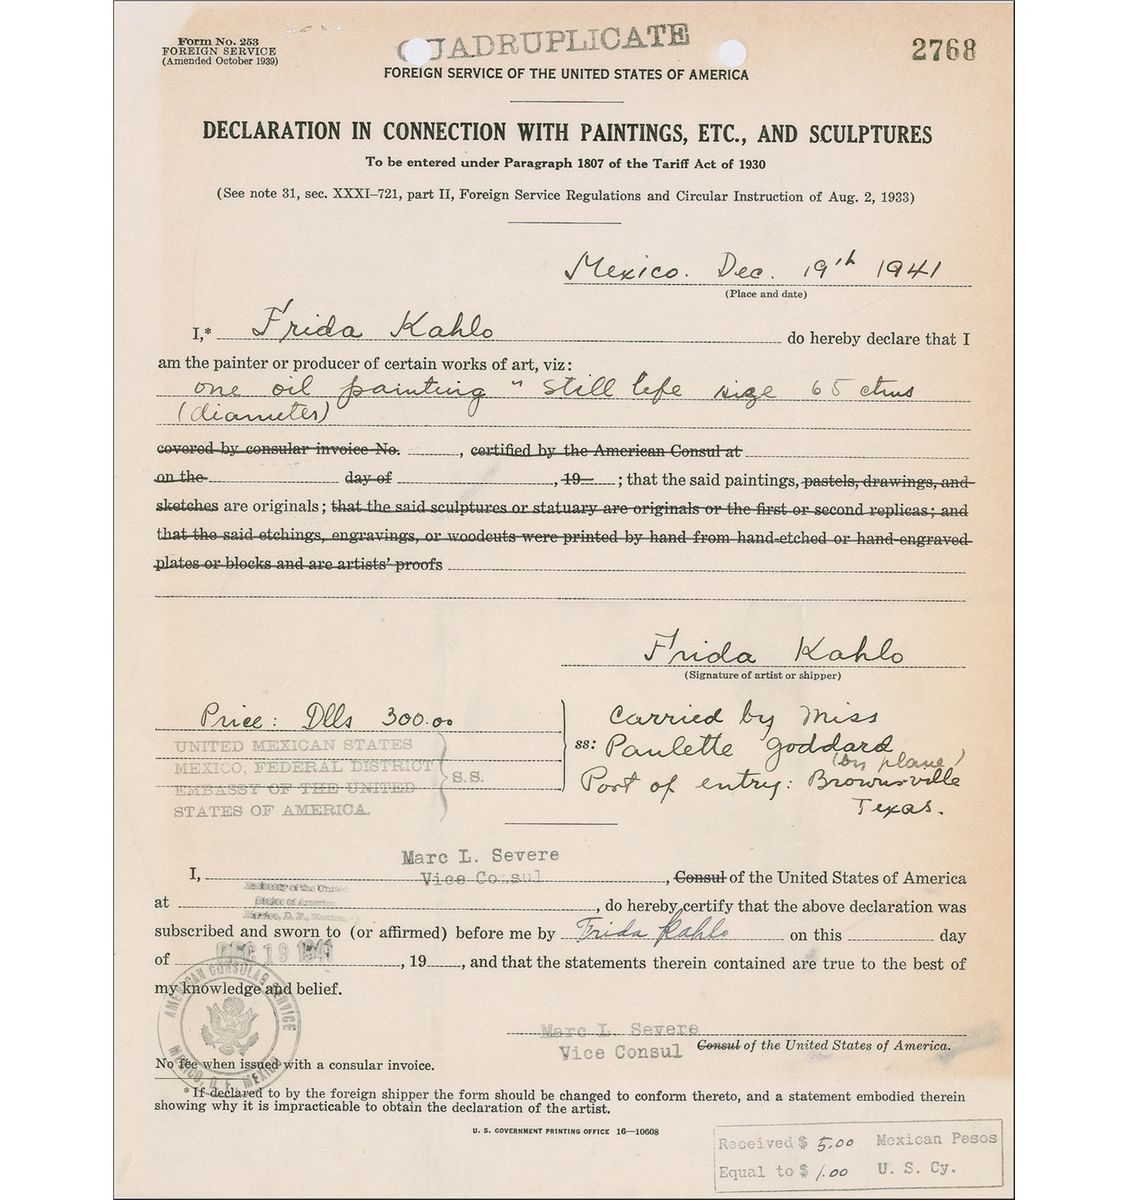 Form No. 253
FOREIGN SERVICE
(Amended October 1939)
QUADRUPLICATE
2768
FOREIGN SERVICE OF THE UNITED STATES OF AMERICA
DECLARATION IN CONNECTION WITH PAINTINGS, ETC., AND SCULPTURES
To be entered under Paragraph 1807 of the Tariff Act of 1930
(See note 31, sec. XXXI–721, part II, Foreign Service Regulations and Circular Instruction of Aug. 2, 1933)
Mexico. Dec. 19th 1941
(Place and date)
I,* Frida Kahlo do hereby declare that I
am the painter or producer of certain works of art, viz:
one oil painting " Still life size 65 ctms
(diameter)
covered by consular invoice No. , certified by the American Consul at
on the day of , 19 ; that the said paintings, pastels, drawings, and
sketches are originals; that the said sculptures or statuary are originals or the first or second replicas; and
that the said etchings, engravings, or woodcuts were printed by hand from hand-etched or hand-engraved
plates or blocks and are artists' proofs
Frida Kahlo
(Signature of artist or shipper)
Price: Dlls 300.00
UNITED MEXICAN STATES
MEXICO, FEDERAL DISTRICT
EMBASSY OF THE UNITED
STATES OF AMERICA.
S.S.
ss:
Carried by Miss
Paulette Goddard
(by plane)
Port of entry: Brownsville
Texas.
Marc L. Severe
Vice Consul
I, , Consul of the United States of America
Embassy of the United
States of America
Mexico, D. F., Mexico.
at , do hereby certify that the above declaration was
subscribed and sworn to (or affirmed) before me by Frida Kahlo on this day
DEC 19 1941
of , 19 , and that the statements therein contained are true to the best of
my knowledge and belief.
AMERICAN CONSULAR SERVICE
MEXICO, D. F. MEXICO
Marc L. Severe
Vice Consul
Consul of the United States of America.
No fee when issued with a consular invoice.
*If declared to by the foreign shipper the form should be changed to conform thereto, and a statement embodied therein
showing why it is impracticable to obtain the declaration of the artist.
U. S. GOVERNMENT PRINTING OFFICE 16—10608
Received $ 5.00 Mexican Pesos
Equal to $ 1.00 U. S. Cy.